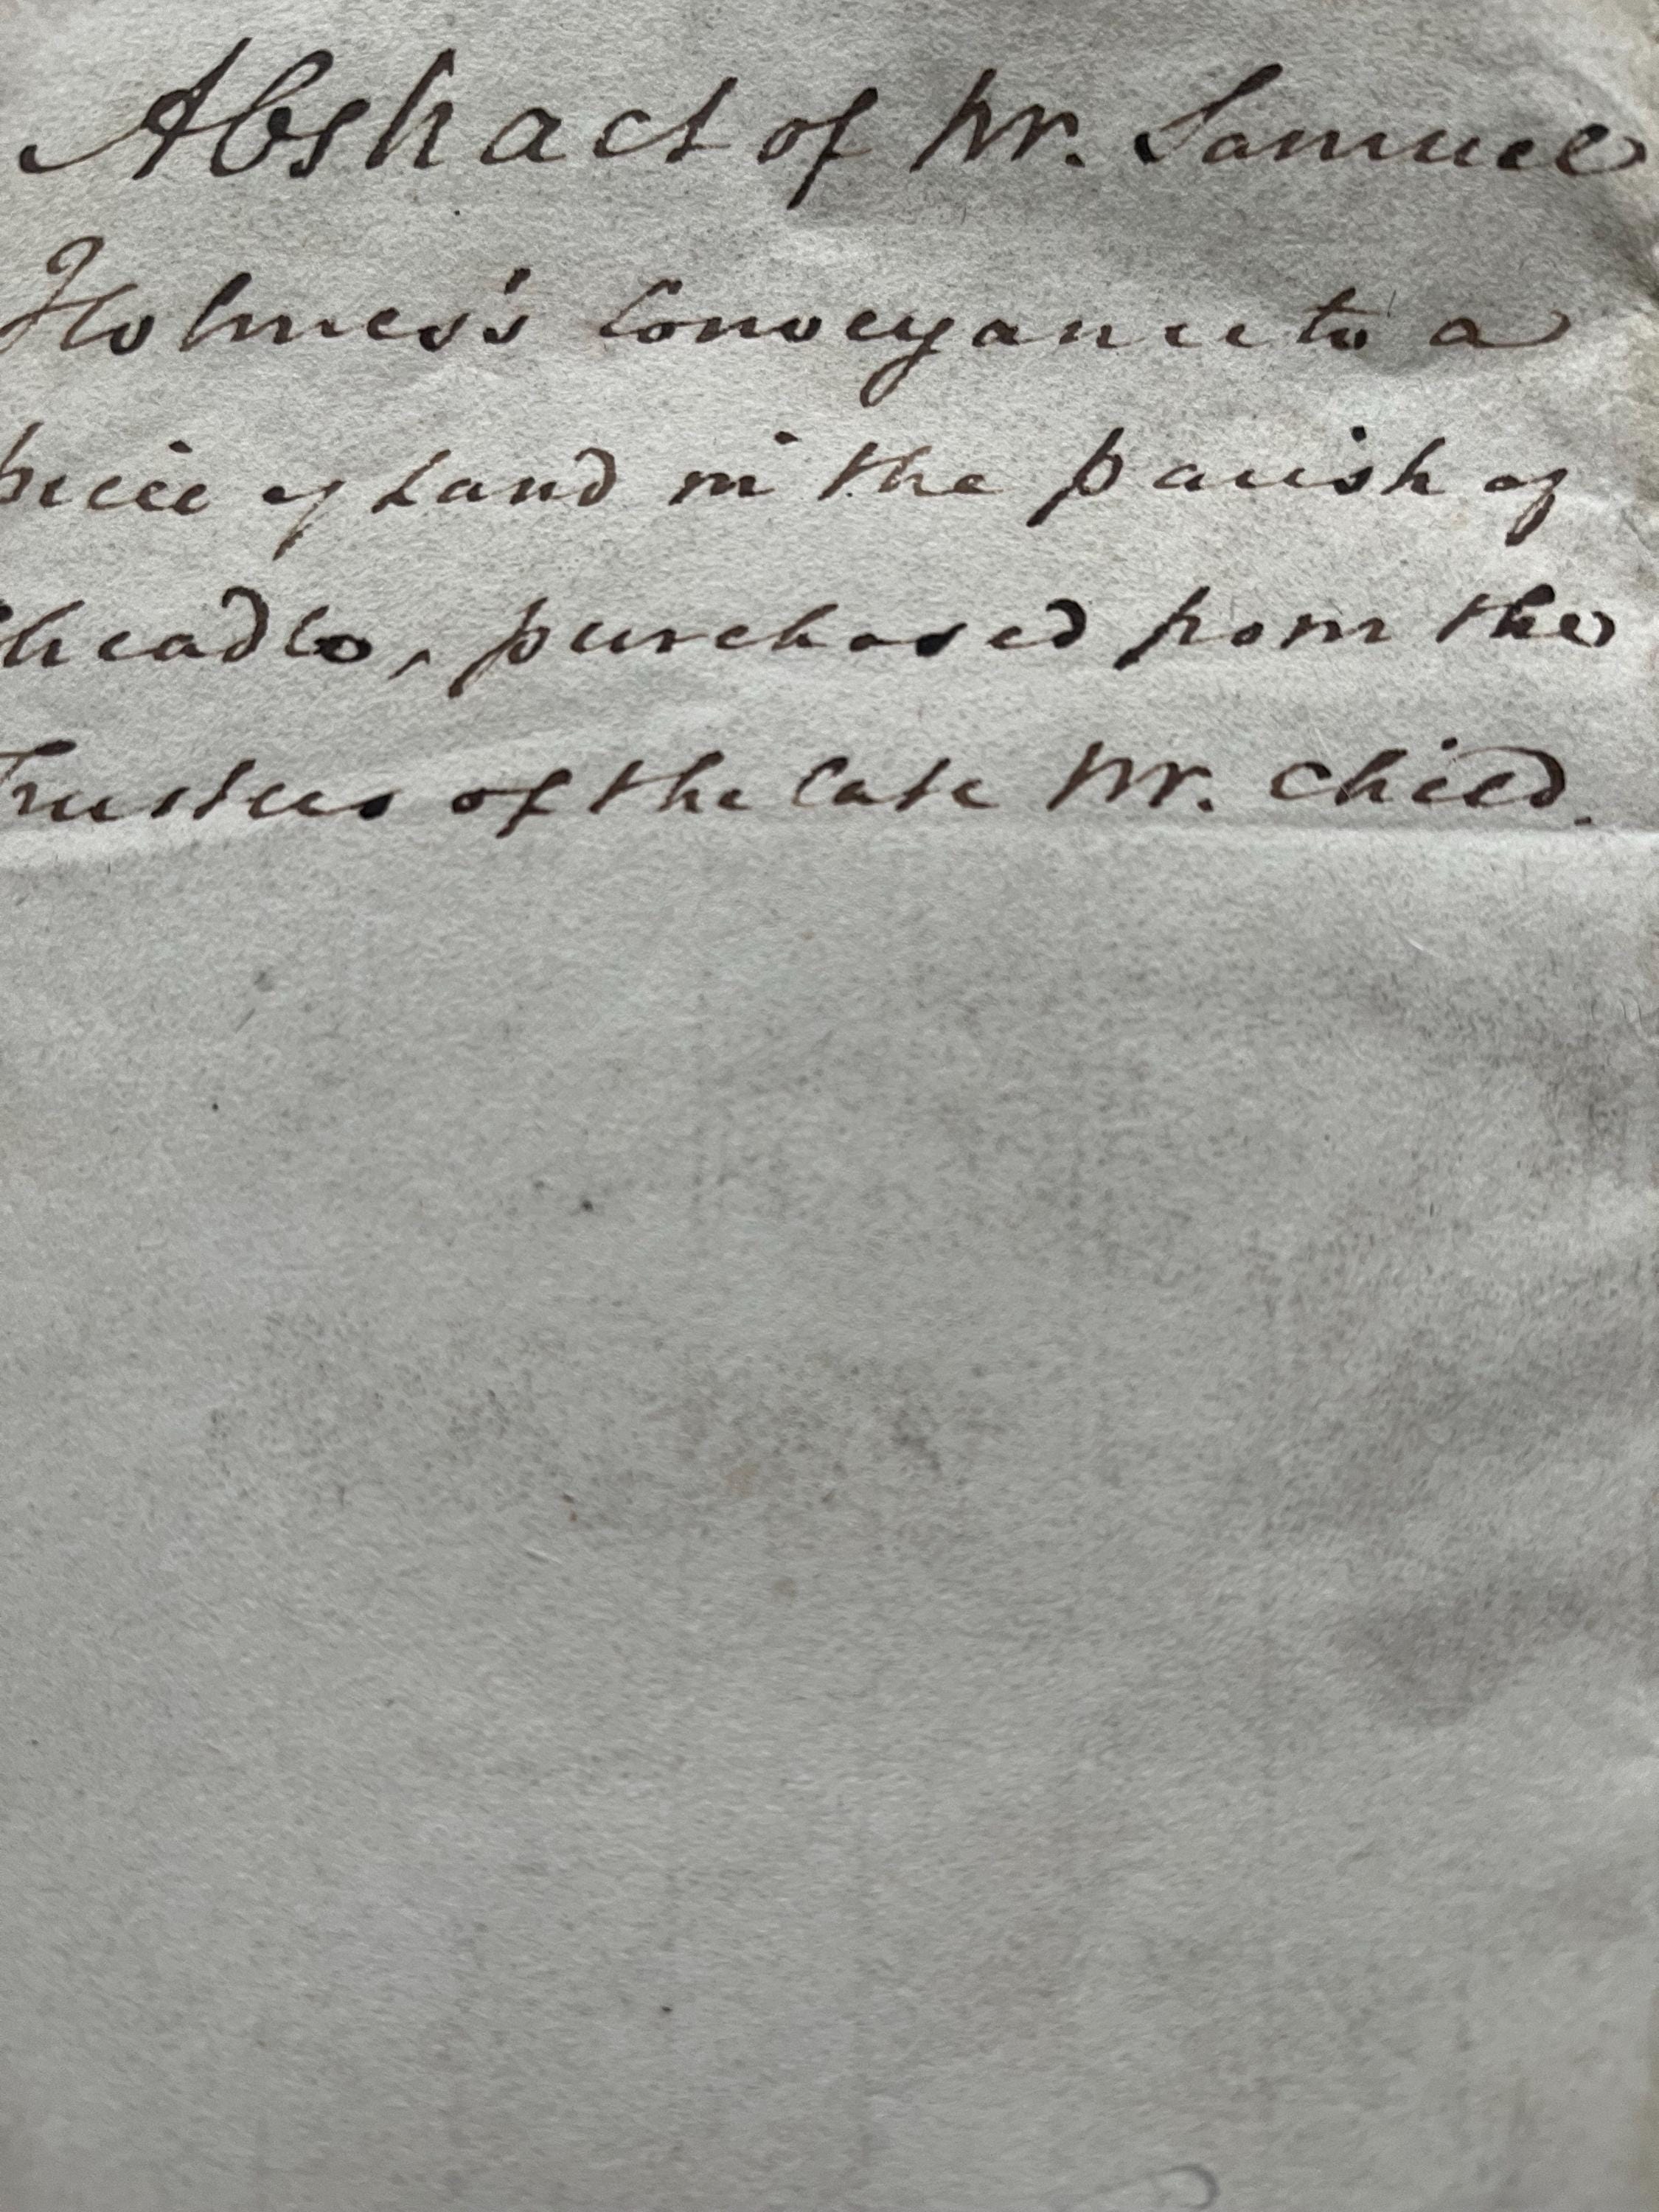 Abstract of Mr. Samuel
Holmes's Conveyance to a
piece of Land in the parish of
Cheadle, purchased from the
Trustees of the late Mr. Child.